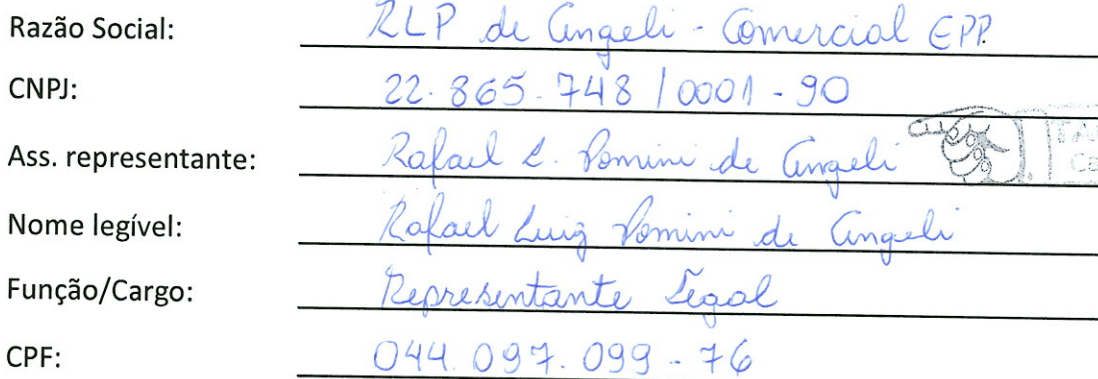 Razão Social: RLP de Angeli - Comercial EPP.
CNPJ: 22.865.748 / 0001 - 90
Ass. representante: Rafael L. Pomini de Angeli
Nome legível: Rafael Luiz Pomini de Angeli
Função/Cargo: Representante Legal
CPF: 044.097.099 - 76